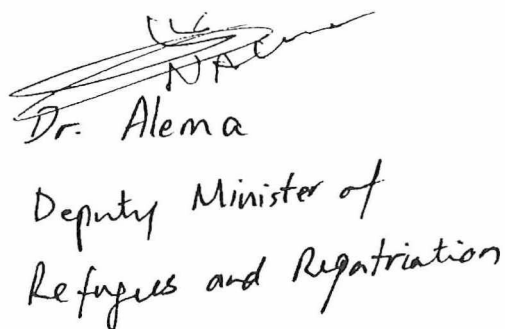 Dr. Alema
Deputy Minister of
Refugees and Repatriation